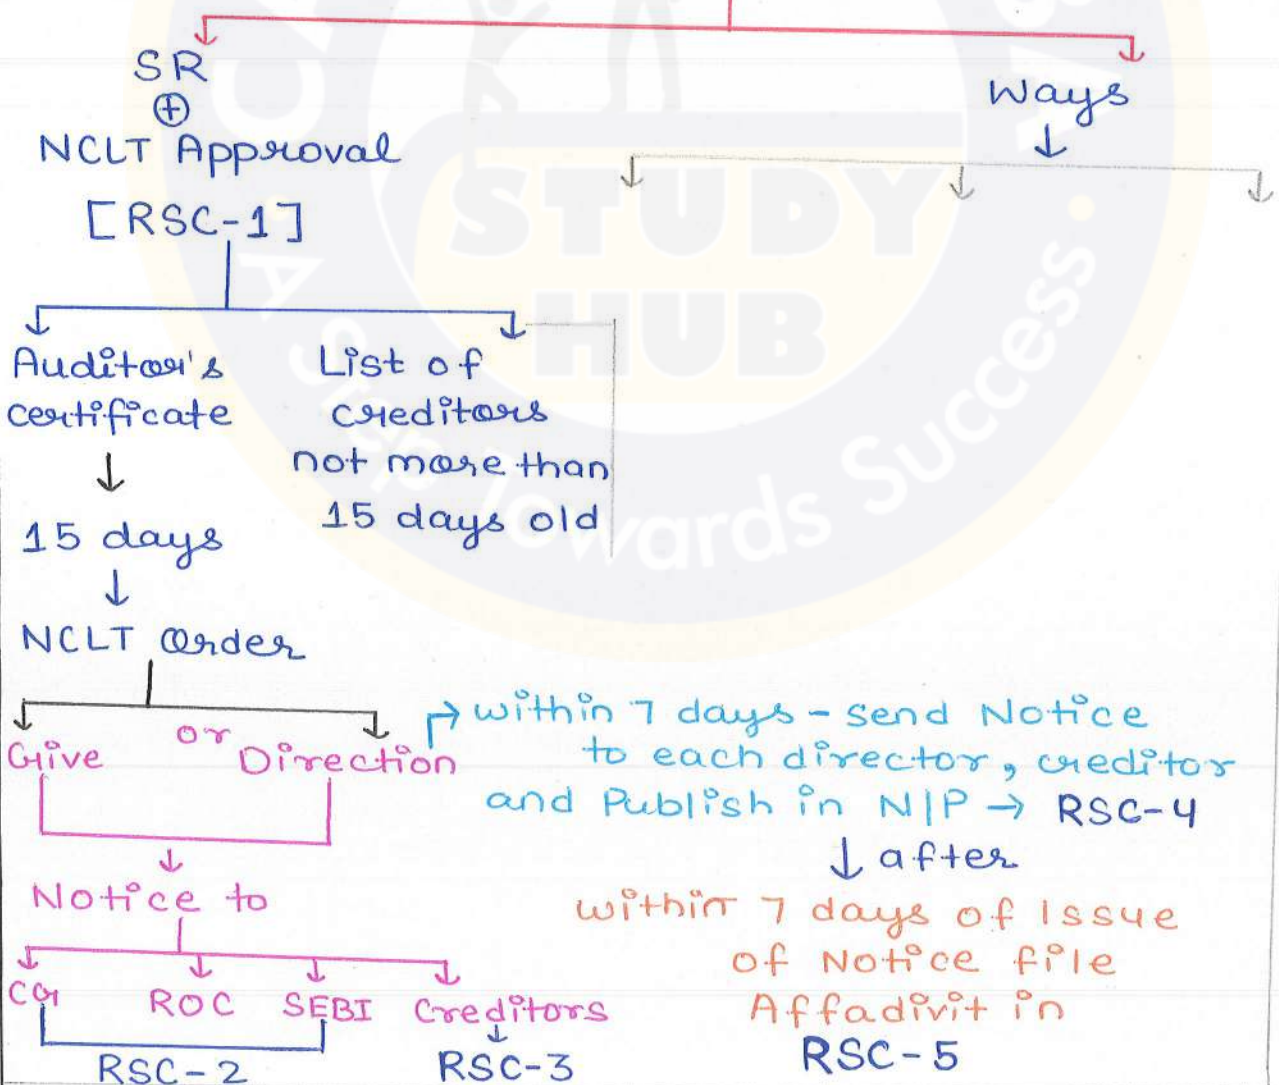 SR
⊕
NCLT Approval
[RSC-1]
Ways
Auditor's
certificate
15 days
List of
creditors
not more than
15 days old
NCLT Order
Give or Direction
within 7 days - send Notice
to each director, creditor
and Publish in N|P → RSC-4
after
within 7 days of Issue
of Notice file
Affadivit in
RSC-5
Notice to
CG ROC SEBI Creditors
RSC-2 RSC-3
STUDY
HUB
A Step Towards Success